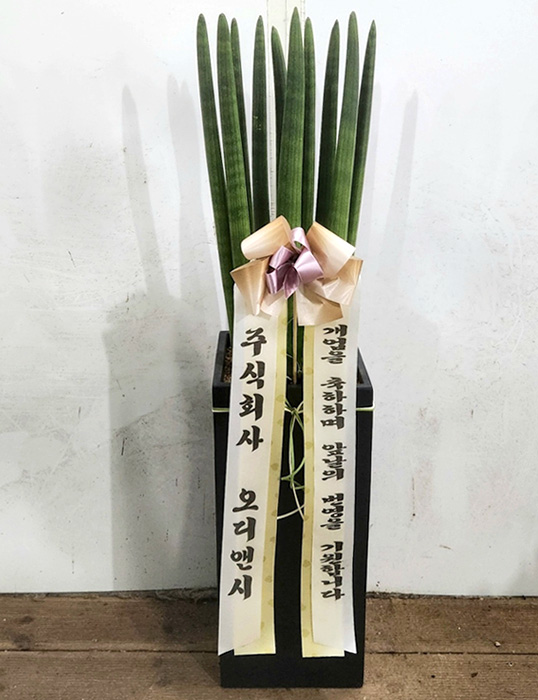 주식회사 오디앤시
개업을 축하하며 앞날의 번영을 기원합니다